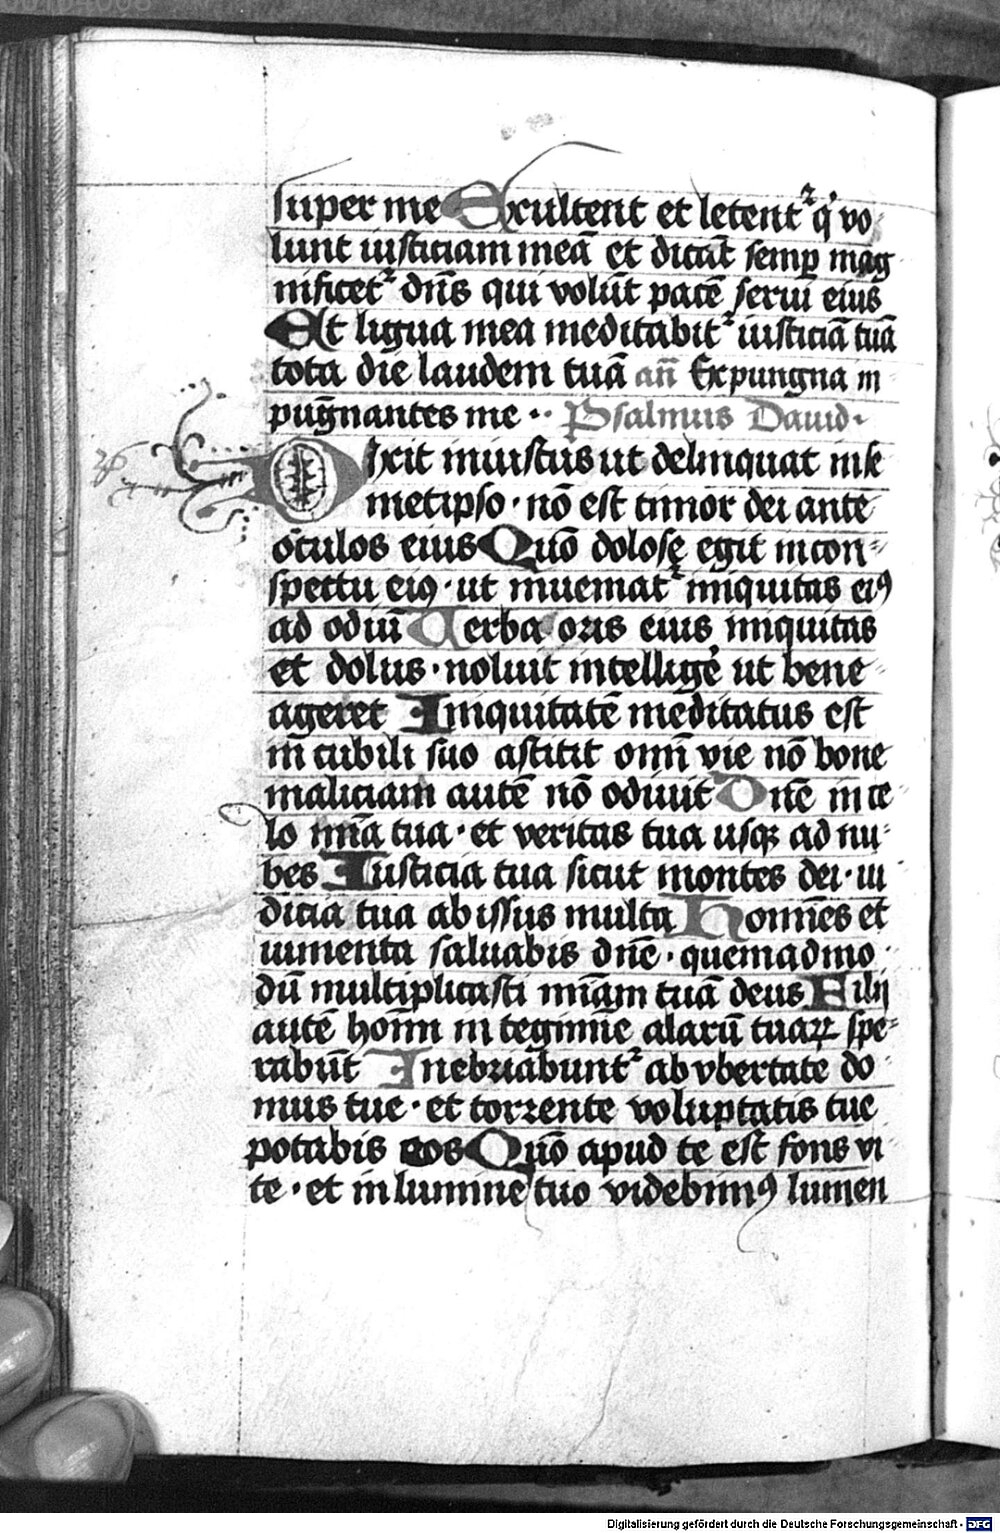 super me Exultent et letent᷑ q̇ vo⸗
lunt iusticiam meā et dicāt semꝑ mag
nificet᷑ dn̄s qui volūt pacē serui eius
Et ligua mea meditabit᷑ iusticiā tuā
tota die laudem tuā an̄ Expungna in
pug̅nantes me ·· Psalmus Dauid·
Dixit iniustus ut delinquat in se
metipso · nō est timor dei ante
oculos eius Quō dolose egit in con⸗
spectu eiꝰ · ut inueniat᷑ iniquitas eiꝰ
ad odiū Uerba oris eius iniquitas
et dolus · noluit intellige᷑ ut bene
ageret Iniquitatē meditatus est
in cubili suo astitit om̄i vie nō bone
maliciam autē nō odiuit Dn̄e in ce
lo mīa tua · et veritas tua usqꝫ ad nu⸗
bes Iusticia tua sicut montes dei · iu
dicia tua abissus multa Homīes et
iumenta saluabis dn̄e · quemadmo
dū multiplicasti mīam tuā deus Filij
autē homī in tegimīe alarū tuaꝝ spe⸗
rabūt Inebriabunt᷑ ab vbertate do
mus tue · et torrente voluptatis tue
potabis eos Quō apud te est fons vi
te · et in lumine tuo videbimꝰ lumen
Digitalisierung gefördert durch die Deutsche Forschungsgemeinschaft - DFG